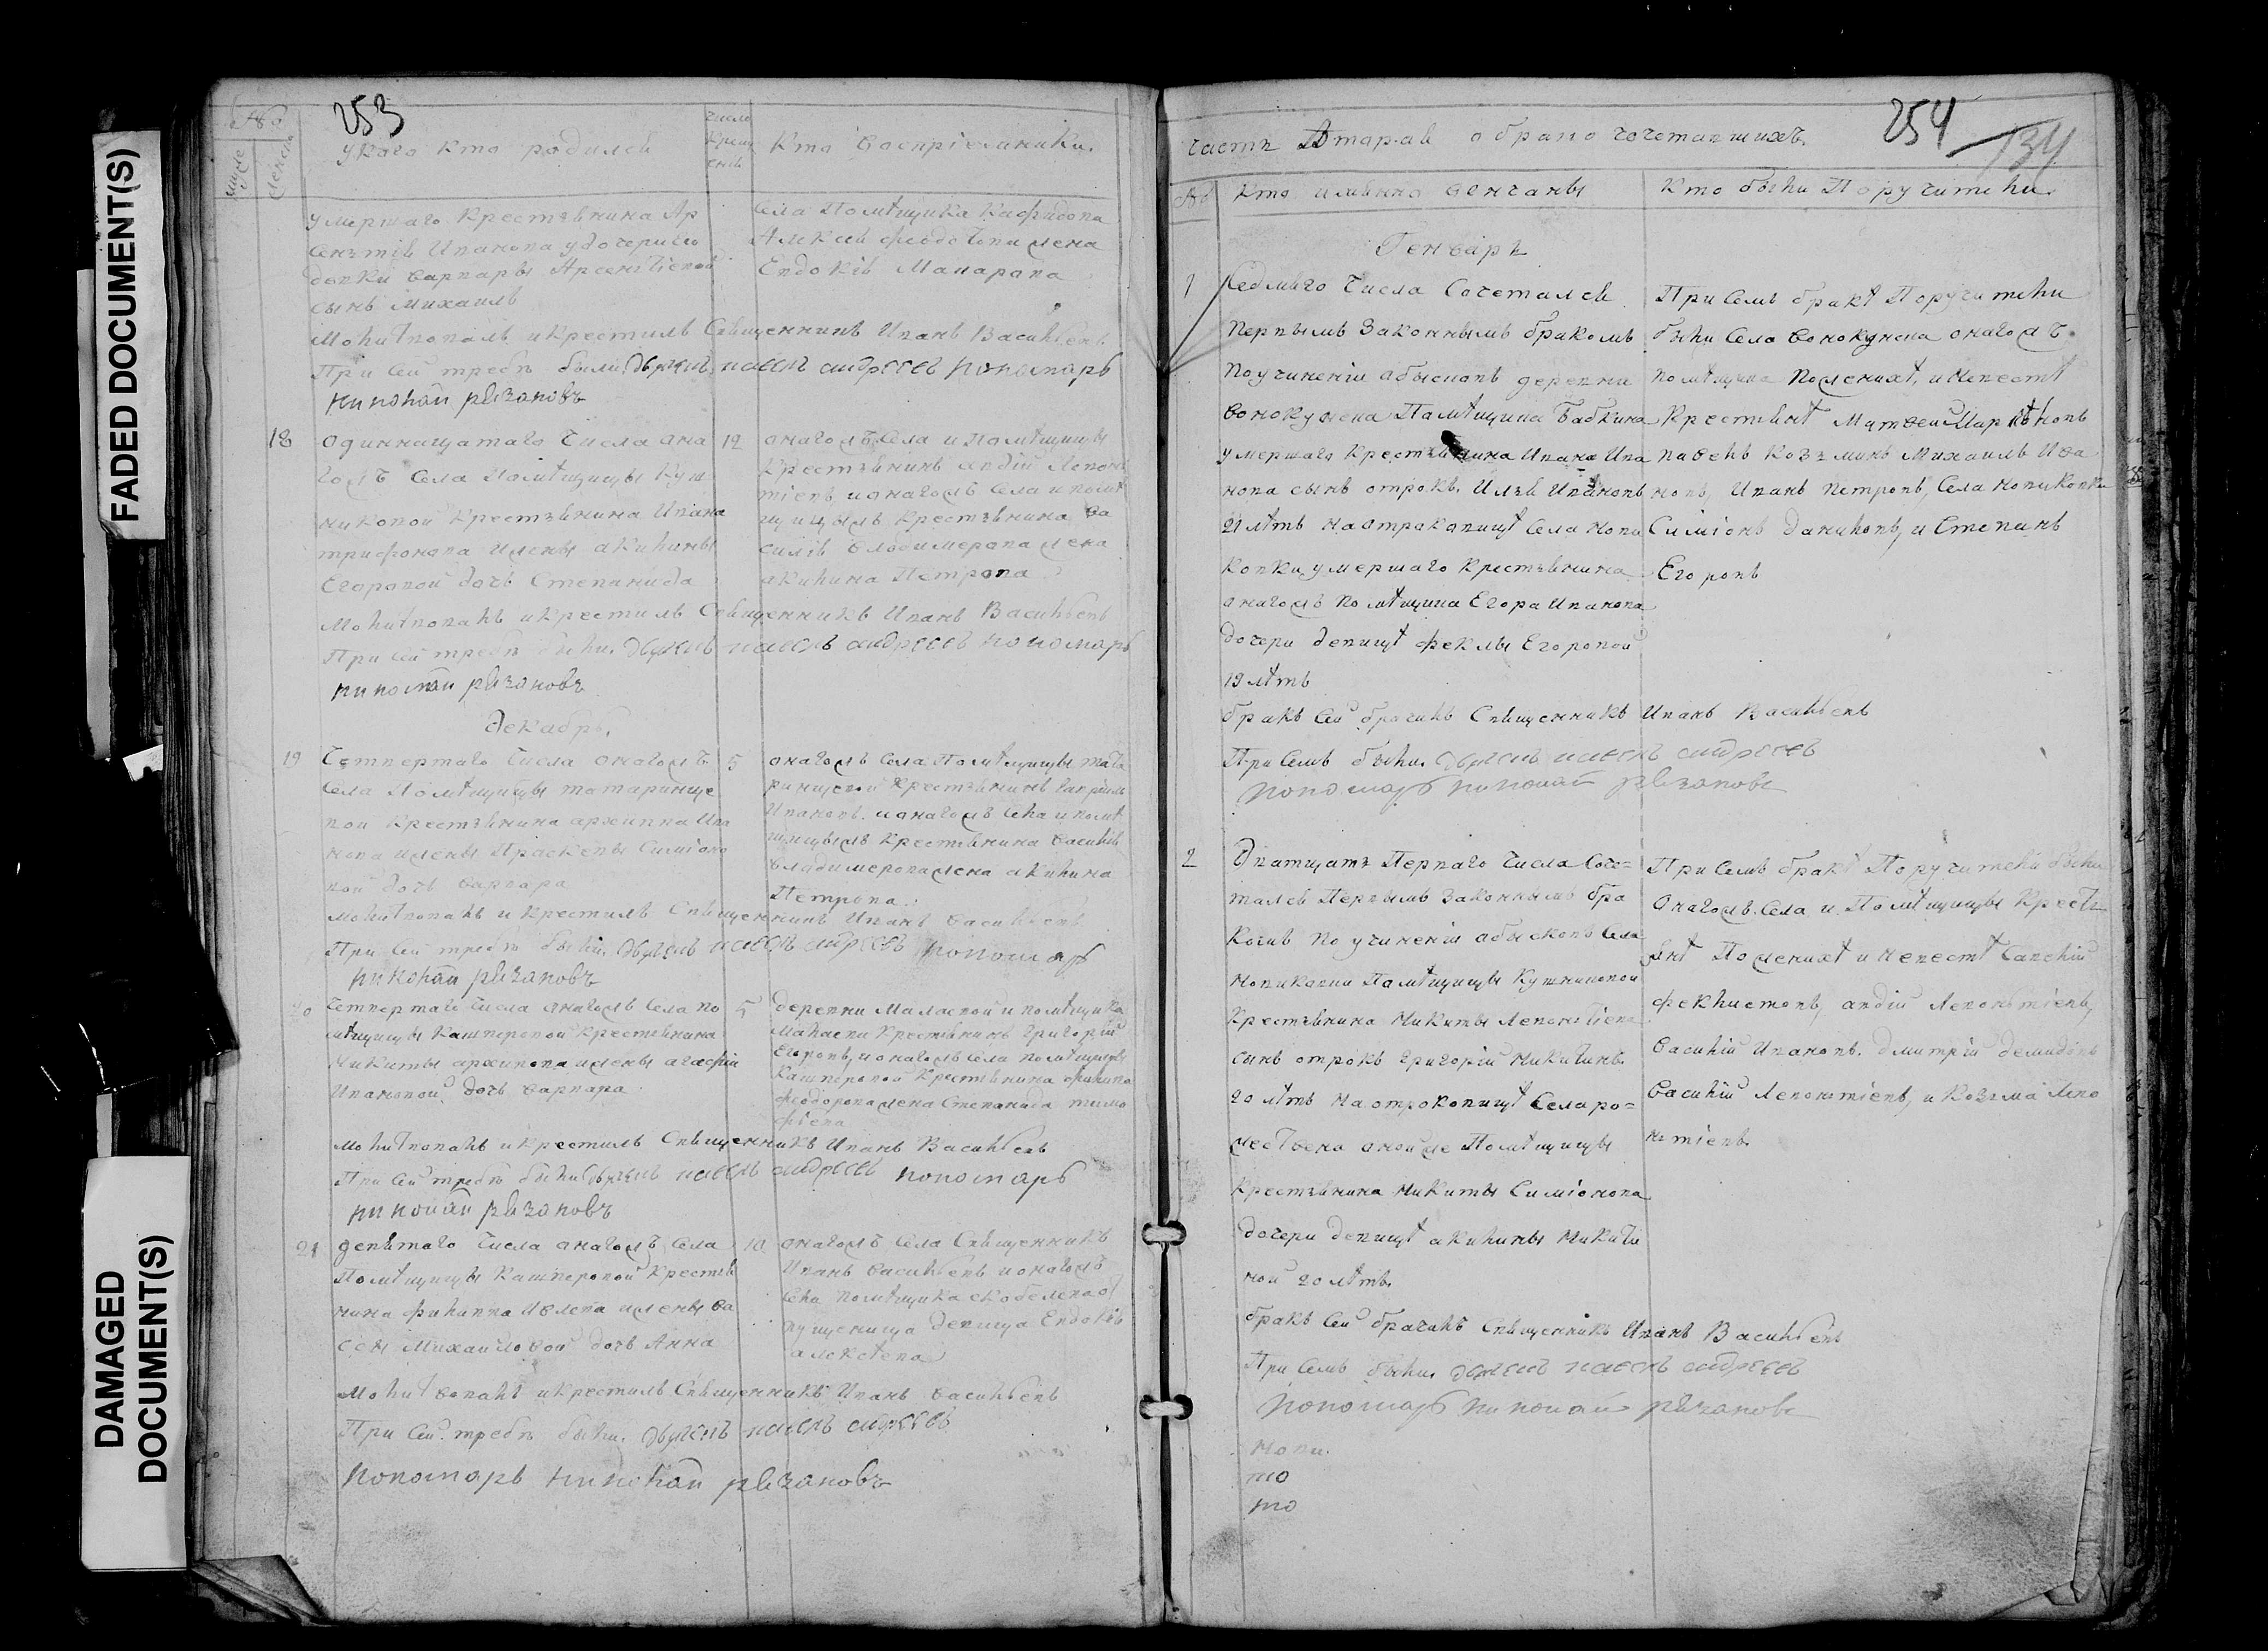 FADED DOCUMENT(S)
DAMAGED DOCUMENT(S)
253
№
у кого кто родился
число крещенія
Кто восприемники.
умершаго крестьянина Ар
сентія Иванова у дочери его
девки варвары Арсентіевой
сынъ михаилъ
села Помѣщика
Алексія феодотова жена
Евдокія Макарова
Молитвовалъ и крестилъ Священникъ Иванъ Васильевъ
При сей требѣ были дьяконъ павелъ андреевъ пономарь
николай рязановъ
18
одиннацатаго числа она
гожъ села помѣщицы Куш
никовой крестьянина Ивана
трифонова и жены акилины
Егоровой дочь Степанида
12
онагожъ села и помѣщицы
крестьянинъ авдій Леонь
тіевъ и онагожъ села и помѣ
щицыжъ крестьянина ва
силія владимерова жена
акилина Петрова
Молитвовалъ и крестилъ Священникъ Иванъ Васильевъ
При сей требѣ были дьяконъ павелъ андреевъ пономарь
николай рязановъ
декабрь
19
Четвертаго числа онагожъ
села Помѣщицы татаринце
вой крестьянина архиппа Ива
нова и жены Праскевы Симіоно
вой дочь варвара
5
онагожъ села Помѣщицы тата
ринцевой крестьянинъ
Ивановъ и онагожъ села и помѣ
щицыжъ крестьянина василія
владимерова жена акилина
Петрова.
Молитвовалъ и крестилъ Священникъ Иванъ Васильевъ
При сей требѣ были дьяконъ павелъ андреевъ пономарь
николай рязановъ
20
Четвертаго числа онагожъ села по
мѣщицы Кашперовой крестьянина
Никиты архипова и жены агафіи
Ивановой дочь варвара
5
деревни Маласвой и помѣщика
крестьянинъ григорій
Егоровъ, и онагожъ села помѣщицы
Кашперовой крестьянина филипа
феодорова жена Степанида тимо
фіева
Молитвовалъ и крестилъ Священникъ Иванъ Васильевъ
При сей требѣ были дьяконъ павелъ андреевъ пономарь
николай рязановъ
21
девятаго числа онагожъ села
Помѣщицы Кашперовой крестья
нина филиппа и жены ва
ссы Михайловой дочь Анна
10
онагожъ села Священникъ
Иванъ васильевъ и онагожъ
села помѣщика скобелева от
пущеница девица Евдокія
алексѣева
Молитвовалъ и крестилъ Священникъ Иванъ васильевъ
При сей требѣ были дьяконъ павелъ андреевъ
пономарь николай рязановъ
254
134
часть вторая о бракосочетавшихъ
№
Кто имянно венчаны
Кто были Поручители
Генварь
1
седмаго числа Сочетался
первымъ законнымъ бракомъ
по учиненіи обысковъ деревни
Помѣщика бабкина
умершаго крестьянина Ивана Ива
нова сынъ отрокъ Илья Ивановъ
21 лѣтъ на отроковицѣ села нови
ковки умершаго крестьянина
онагожъ помѣщика Егора Иванова
дочери девицѣ феклы Егоровой
19 лѣтъ
При семъ бракѣ Поручители
были села онагожъ
помѣщика по женихѣ, и невестѣ
крестьянѣ Матвей
павелъ козьминъ михаилъ Ива
новъ, Иванъ петровъ, Села новиковки
Симіонъ даниловъ, и Степанъ
Егоровъ
бракъ сей брачилъ Священникъ Иванъ Васильевъ
При семъ были дьяконъ павелъ андреевъ
пономарь николай рязановъ
2
Дватцать перваго числа соче=
тался первымъ законнымъ бра
комъ по учиненіи обысковъ села
новиковки Помѣщицы Кушниковой
крестьянина Никиты Леонтіева
сынъ отрокъ григорій никитинъ
20 лѣтъ на отроковицѣ Села ро=
жествена оной же Помѣщицы
крестьянина никиты Симіонова
дочери девицѣ акилины никити
ной 20 лѣтъ.
При семъ бракѣ Поручители были
Онагожъ Села и Помѣщицы крестъ
янѣ По женихѣ и невестѣ савелій
феклистовъ, авдій Леонтіевъ,
василій Ивановъ. дмитрій демидовъ
василій Леонтіевъ, и козьма Лео
нтіевъ.
бракъ сей брачилъ Священникъ Иванъ Васильевъ
При семъ были дьяконъ павелъ андреевъ
пономарь николай рязановъ
то
то